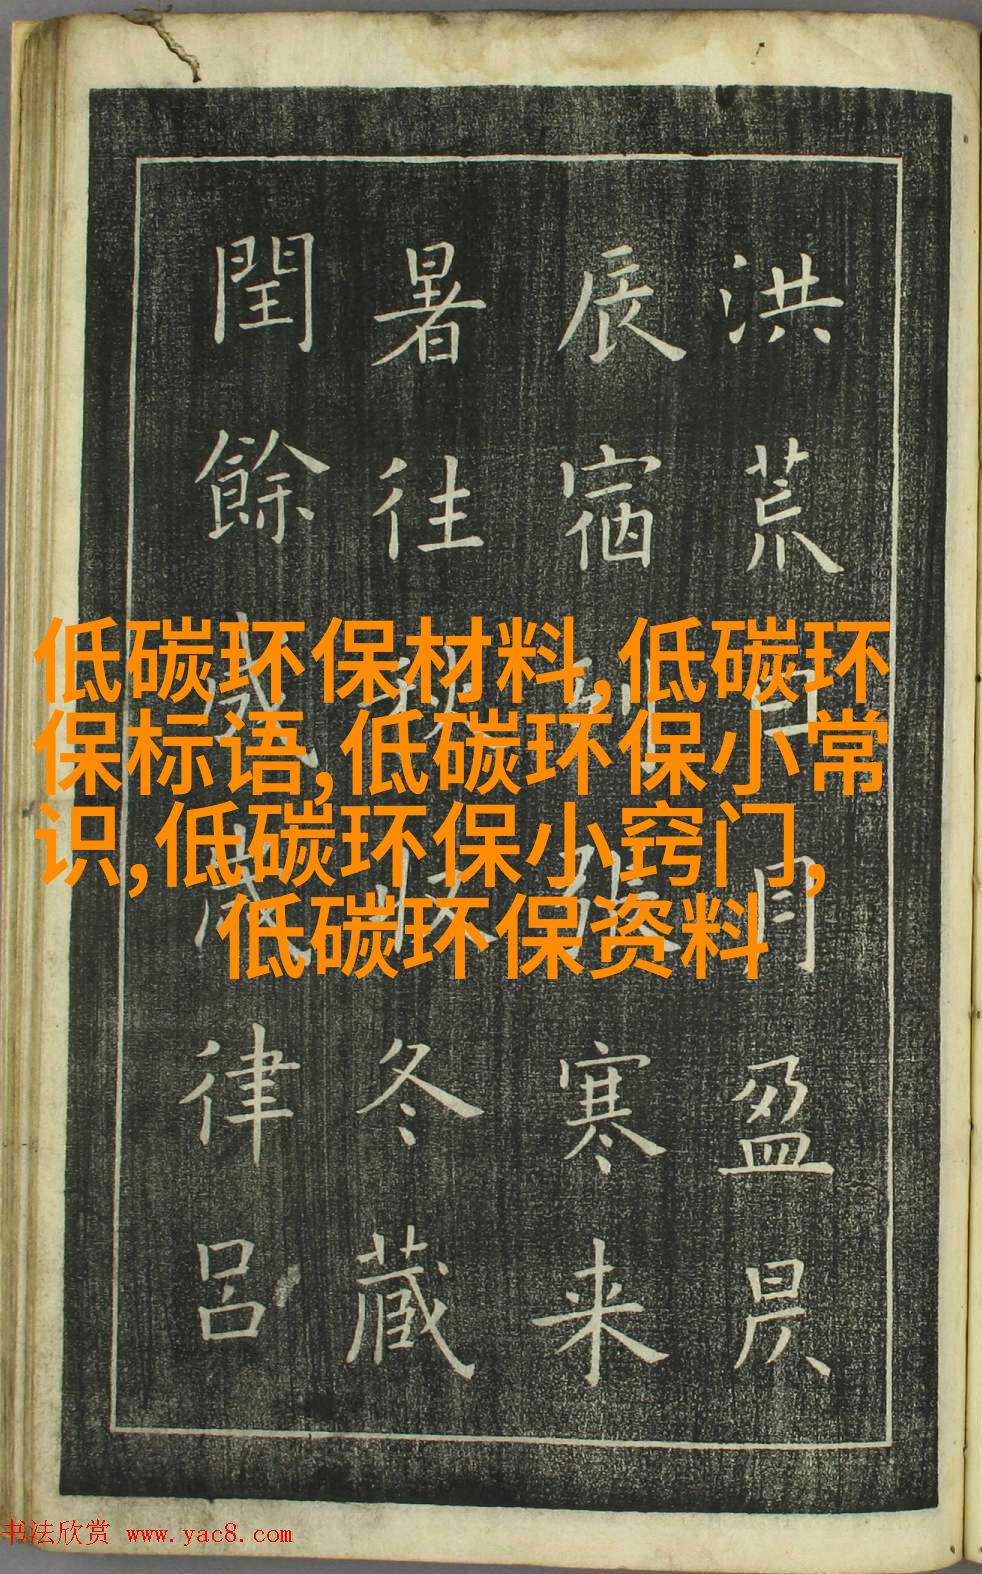 洪荒日月盈昃
辰宿列張寒来
暑往秋收冬藏
閏餘成歲律呂
低碳环保材料,低碳环
保标语,低碳环保小常
识,低碳环保小窍门,
低碳环保资料
书法欣赏 www.yac8.com